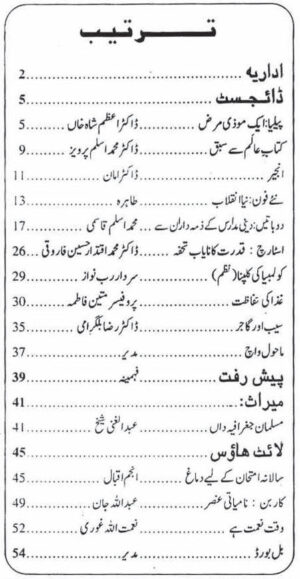 تــرتیب
اداریہ ............ 2
ڈائجسٹ ............ 5
پیلیا: ایک موذی مرض ............ ڈاکٹر اعظم شاہ خاں ............ 5
کتاب عالم سے سبق ............ ڈاکٹر محمد اسلم پرویز ............ 9
انجیر ............ ڈاکٹر امان ............ 11
نئے فون: نیا انقلاب ............ طاہرہ ............ 13
دو باتیں: دینی مدارس کے ذمہ داران سے ............ محمد اسلم قاسمی ............ 17
اسٹارچ : قدرت کا نایاب تحفہ ............ ڈاکٹر محمد اقتدار حسین فاروقی ............ 26
کولمبیا کی کلپنا (نظم) ............ سردار رب نواز ............ 29
غذا کی حفاظت ............ پروفیسر متین فاطمہ ............ 30
سیب اور گاجر ............ ڈاکٹر رضا بلگرامی ............ 35
ماحول واچ ............ مدیر ............ 37
پیش رفت ............ فہمینہ ............ 39
میراث: ............ 41
مسلمان جغرافیہ داں ............ عبدالغنی شیخ ............ 41
لائٹ ہاؤس ............ 45
سالانہ امتحان کے لیے دماغ ............ انجم اقبال ............ 45
کاربن : نامیاتی عنصر ............ عبداللہ جان ............ 49
وقت نعمت ہے ............ نعمت اللہ غوری ............ 52
بل بورڈ ............ مدیر ............ 54